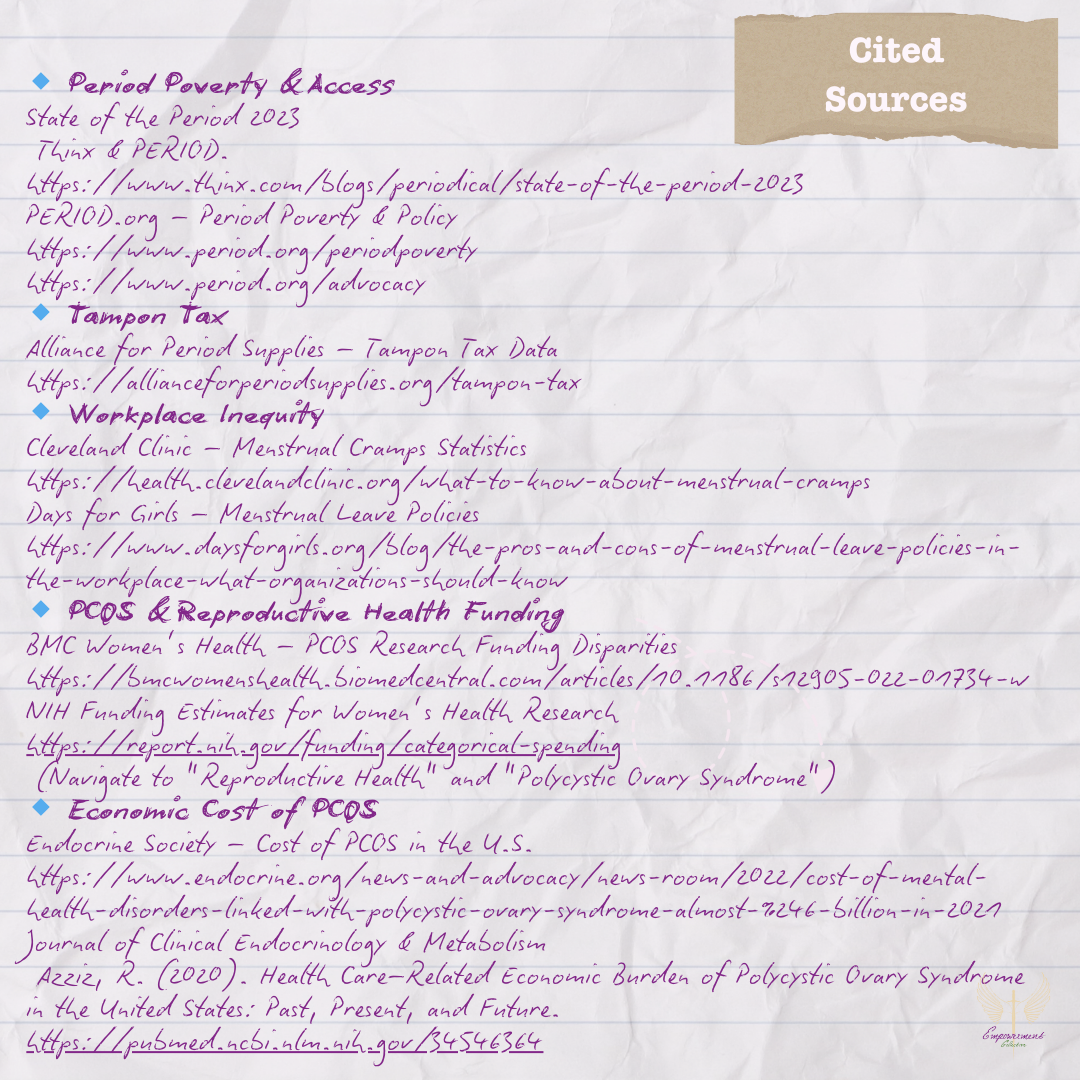 Cited
Sources
Period Poverty & Access
State of the Period 2023
Thinx & PERIOD.
https://www.thinx.com/blogs/periodical/state-of-the-period-2023
PERIOD.org – Period Poverty & Policy
https://www.period.org/periodpoverty
https://www.period.org/advocacy
Tampon Tax
Alliance for Period Supplies – Tampon Tax Data
https://allianceforperiodsupplies.org/tampon-tax
Workplace Inequity
Cleveland Clinic – Menstrual Cramps Statistics
https://health.clevelandclinic.org/what-to-know-about-menstrual-cramps
Days for Girls – Menstrual Leave Policies
https://www.daysforgirls.org/blog/the-pros-and-cons-of-menstrual-leave-policies-in-
the-workplace-what-organizations-should-know
PCOS & Reproductive Health Funding
BMC Women's Health – PCOS Research Funding Disparities
https://bmcwomenshealth.biomedcentral.com/articles/10.1186/s12905-022-01734-w
NIH Funding Estimates for Women's Health Research
https://report.nih.gov/funding/categorical-spending
(Navigate to "Reproductive Health" and "Polycystic Ovary Syndrome")
Economic Cost of PCOS
Endocrine Society – Cost of PCOS in the U.S.
https://www.endocrine.org/news-and-advocacy/news-room/2022/cost-of-mental-
health-disorders-linked-with-polycystic-ovary-syndrome-almost-%246-billion-in-2021
Journal of Clinical Endocrinology & Metabolism
Azziz, R. (2020). Health Care–Related Economic Burden of Polycystic Ovary Syndrome
in the United States: Past, Present, and Future.
https://pubmed.ncbi.nlm.nih.gov/34546364
Empowerment